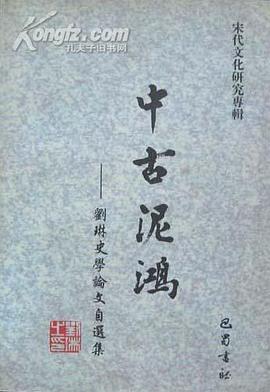 Kongfz.com
孔夫子旧书网
宋代文化研究專輯
中古泥鴻
——劉琳史學論文自選集
巴蜀書社